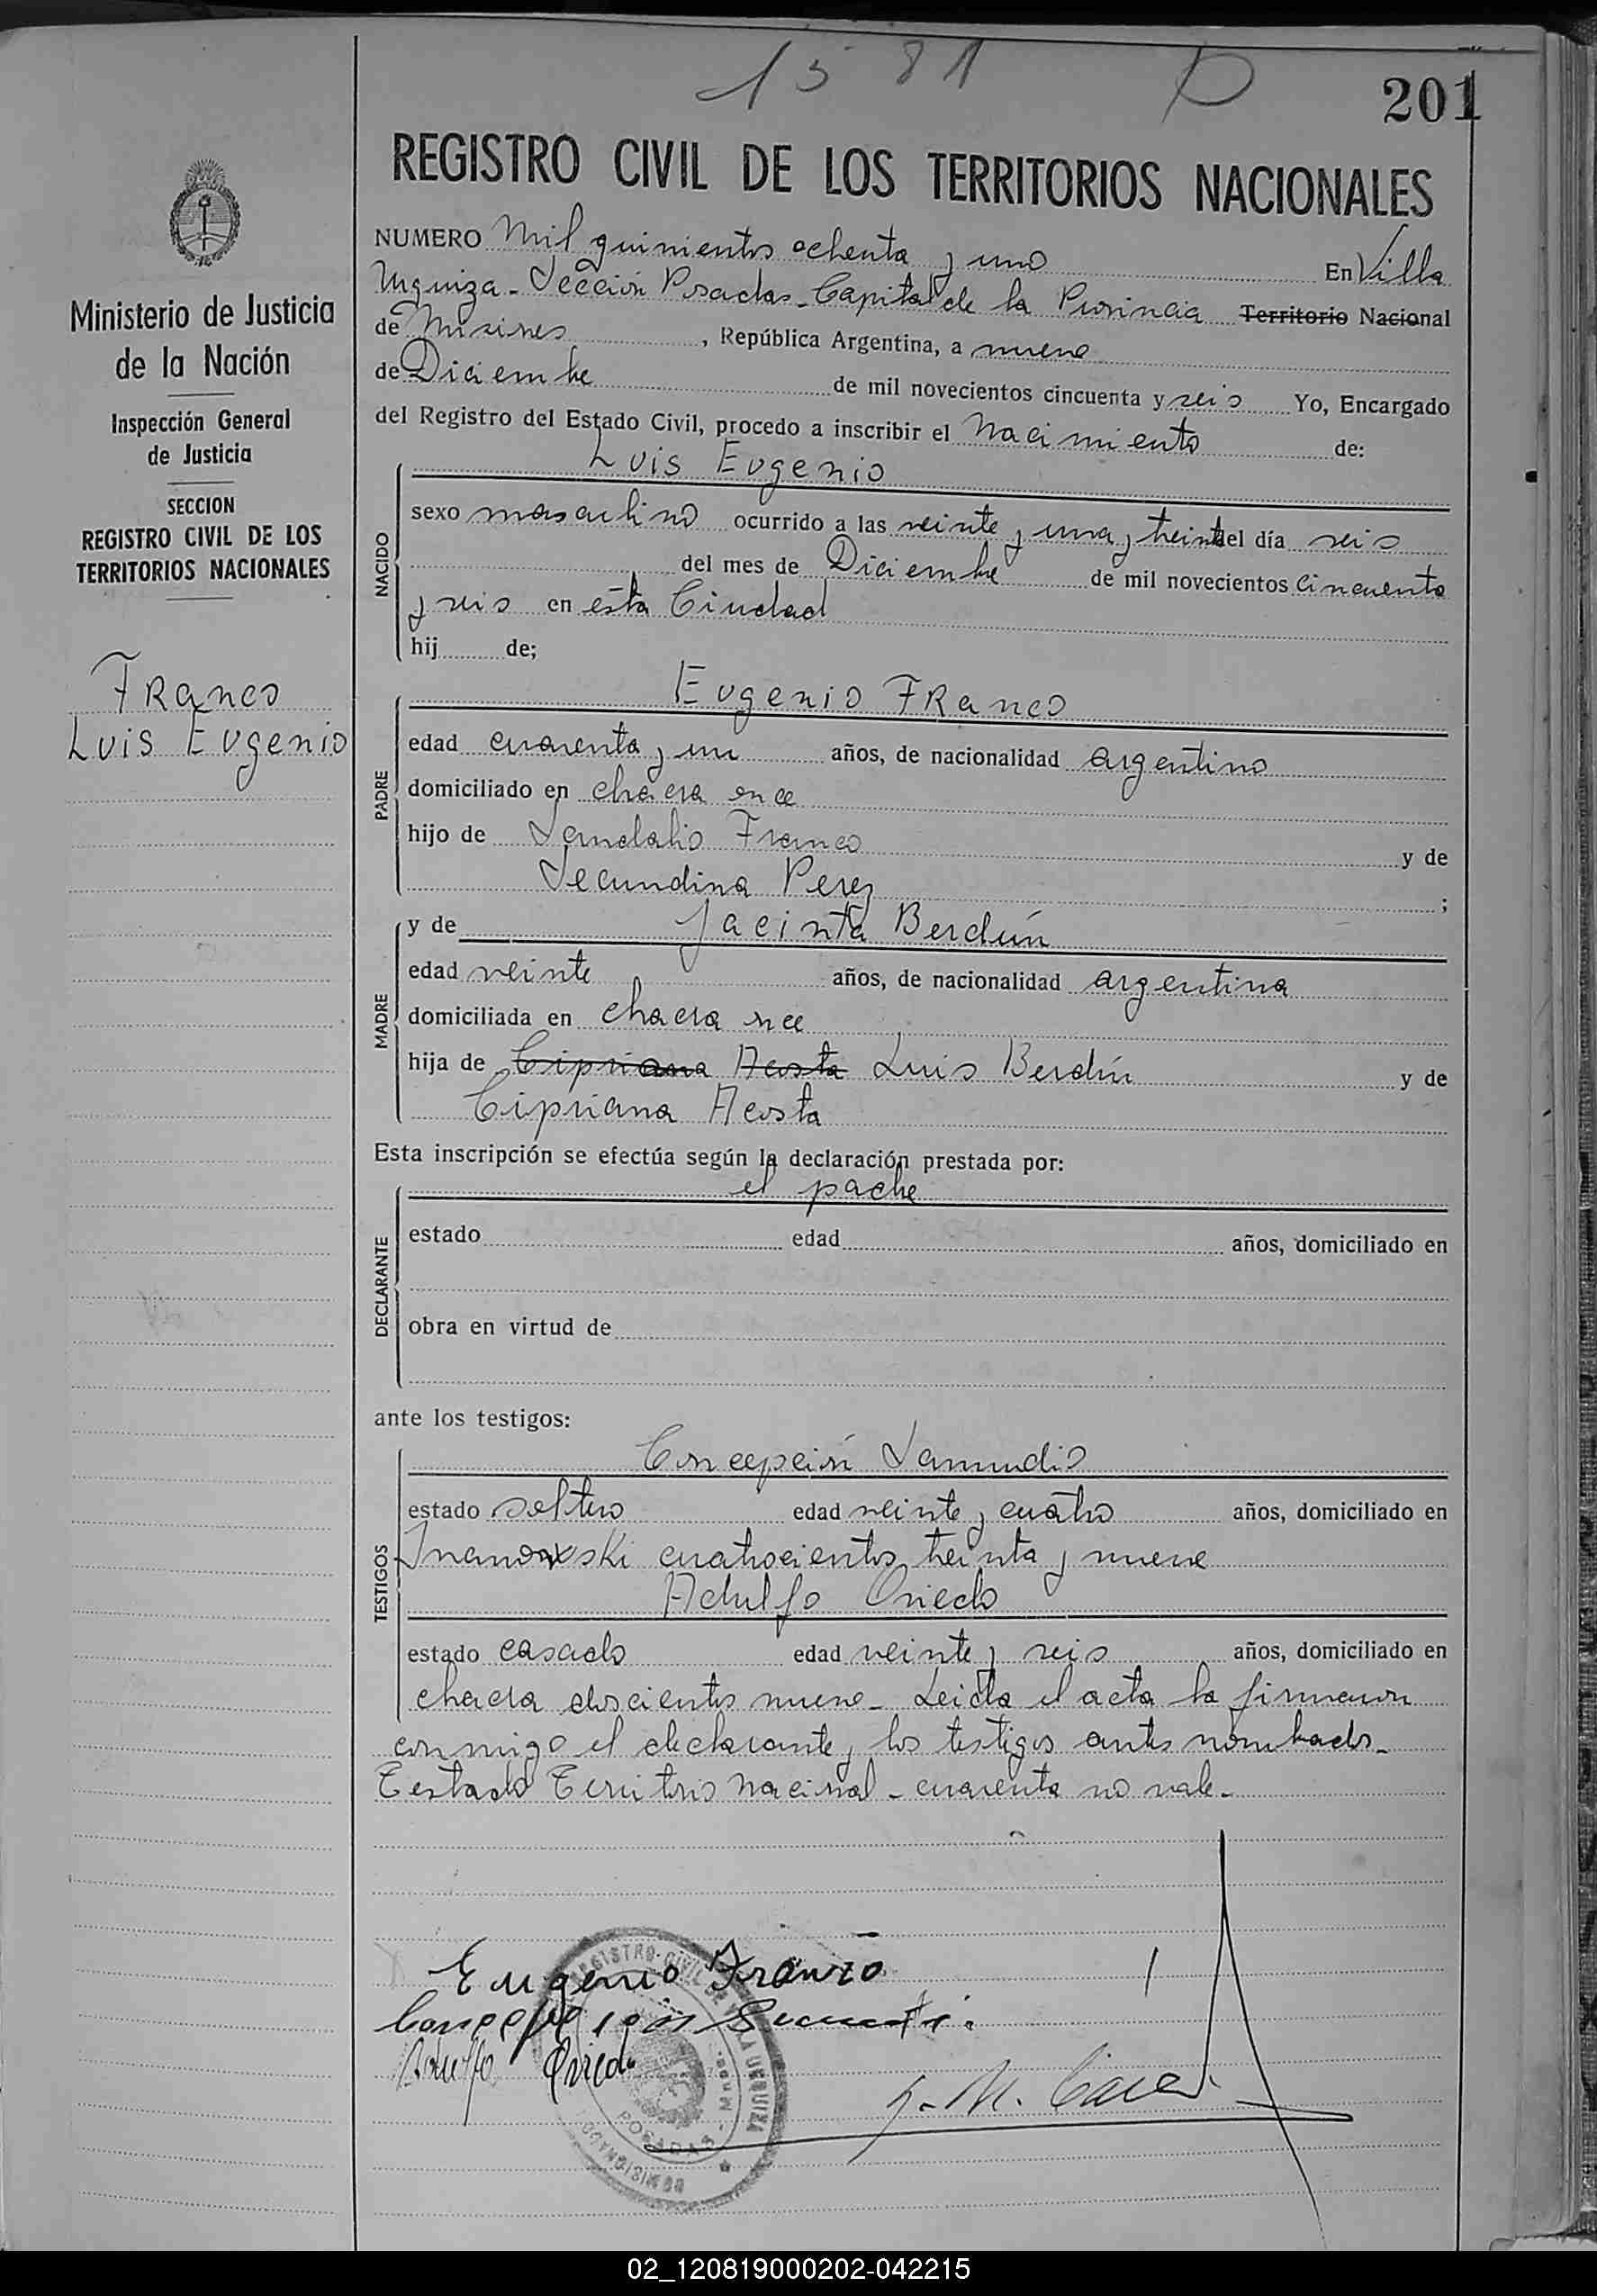 1581 D
201
REGISTRO CIVIL DE LOS TERRITORIOS NACIONALES
Ministerio de Justicia
de la Nación
Inspección General
de Justicia
SECCION
REGISTRO CIVIL DE LOS
TERRITORIOS NACIONALES
Franco
Luis Eugenio
NUMERO Mil quinientos ochenta y uno En Villa
Urquiza - Sección Posadas - Capital de la Provincia Territorio Nacional
de Misiones, República Argentina, a nueve
de Diciembre de mil novecientos cincuenta y seis Yo, Encargado
del Registro del Estado Civil, procedo a inscribir el Nacimiento de:
NACIDO
Luis Eugenio
sexo masculino ocurrido a las veinte y una y treinta del día seis
del mes de Diciembre de mil novecientos cincuenta
y seis en esta Ciudad
hij de;
PADRE
Eugenio Franco
edad cuarenta y un años, de nacionalidad argentino
domiciliado en chacra once
hijo de Sandalio Franco y de
Secundina Perez ;
MADRE
y de Jacinta Berdún
edad veinte años, de nacionalidad argentina
domiciliada en chacra
hija de Cipriana Acosta Luis Berdún y de
Cipriana Acosta
Esta inscripción se efectúa según la declaración prestada por:
DECLARANTE
el padre
estado edad años, domiciliado en
obra en virtud de
ante los testigos:
TESTIGOS
Concepción Samudio
estado soltero edad veinte y cuatro años, domiciliado en
cuatrocientos treinta y nueve
Adulfo Oviedo
estado casado edad veinte y seis años, domiciliado en
chacra doscientos nueve - Leida el acta la firmaron
conmigo el declarante y los testigos antes nombrados -
Testado Territorio Nacional - cuarenta no vale -
Eugenio Franco
Concepción
Adulfo Oviedo
J. M.
REGISTRO CIVIL DE VILLA URQUIZA
POSADAS - Mnes.
02_120819000202-042215